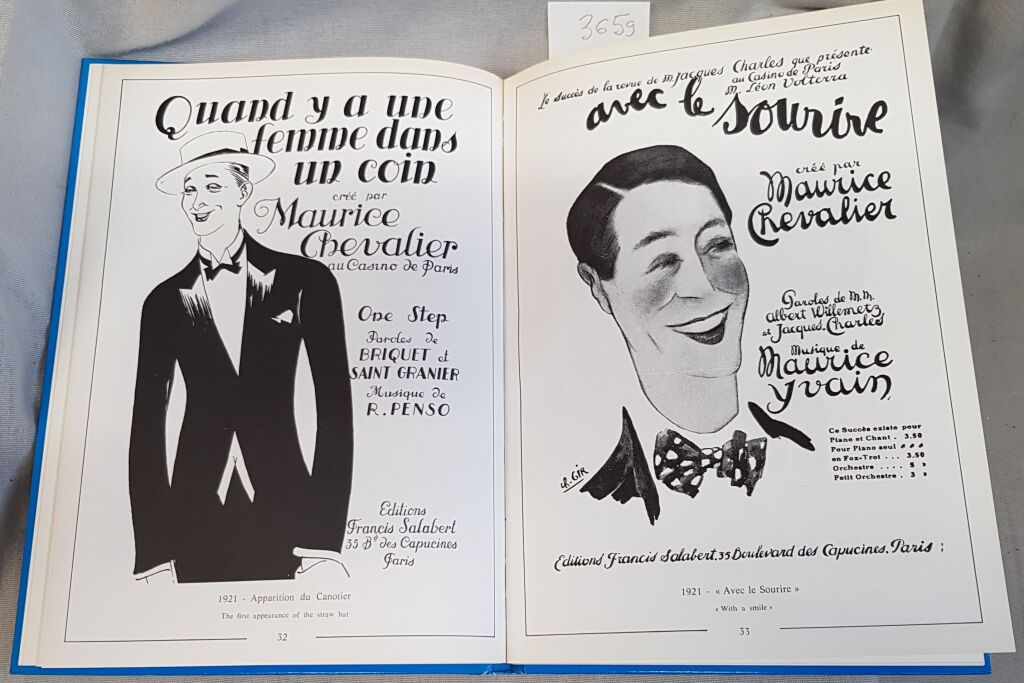 365g
Quand y a une
femme dans
un coin
créé par
Maurice
Chevalier
au Casino de Paris
One Step
Paroles de
BRIQUET et
SAINT GRANIER
Musique de
R. PENSO
Editions
Francis Salabert
35 Bd des Capucines
Paris
1921 - Apparition du Canotier
The first appearance of the straw hat
32
Le succès de la revue de M. Jacques Charles que présente
au Casino de Paris
M. Léon Volterra
avec le sourire
créé par
Maurice
Chevalier
Paroles de M.M.
Albert Willemetz
et Jacques-Charles
Musique de
Maurice
Yvain
Ce Succès existe pour
Piano et Chant . 3.50
Pour Piano seul " " "
en Fox-Trot . . . 3.50
Orchestre . . . . 5 »
Petit Orchestre . 3 »
R. GIR
Editions Francis Salabert, 35 Boulevard des Capucines, Paris :
1921 - « Avec le Sourire »
« With a smile »
33